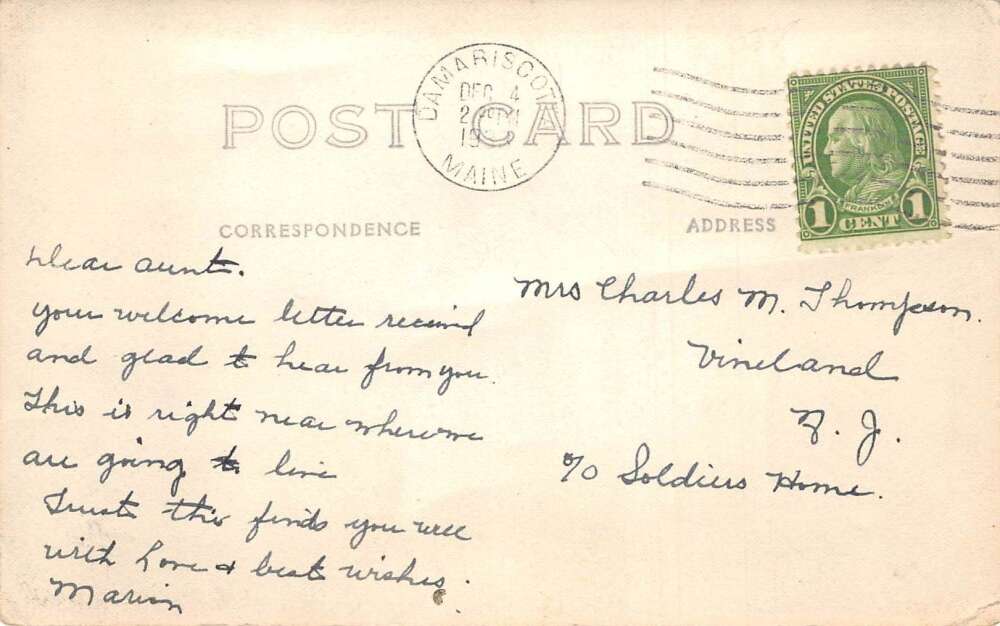 POST CARD
DAMARISCOTTA
DEC 4
2 PM
19
MAINE
UNITED STATES POSTAGE
FRANKLIN
1 CENT 1
CORRESPONDENCE
ADDRESS
Dear Aunt.
your welcome letter received
and glad to hear from you.
This is right near where we
are going to live
Trust this finds you well
with love & best wishes.
Marion
Mrs Charles M. Thompson.
Vineland
N. J.
c/o Soldiers Home.